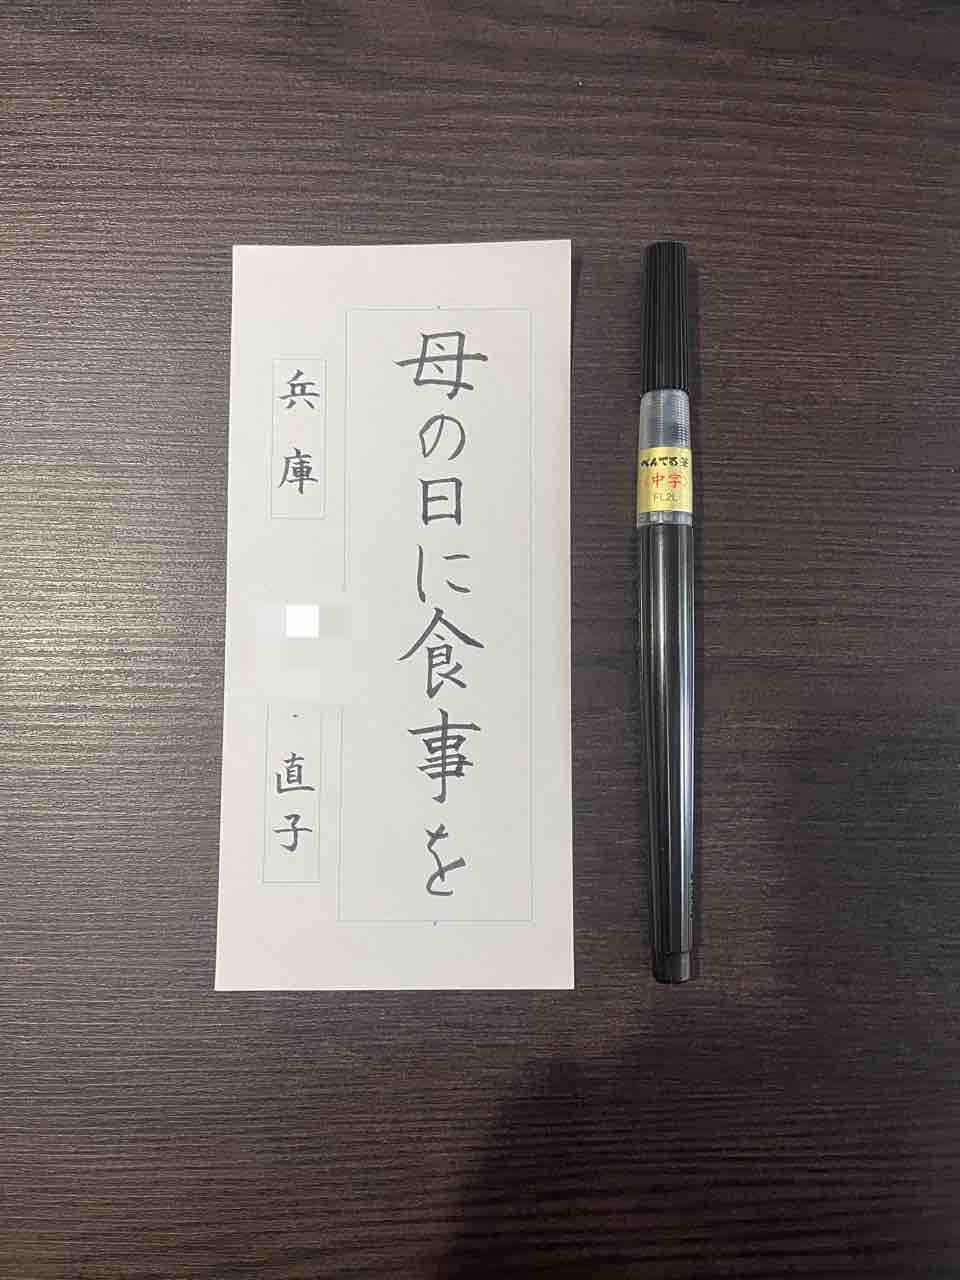 母の日に食事を
兵庫
直子
ぺんてる筆
中字
FL2L